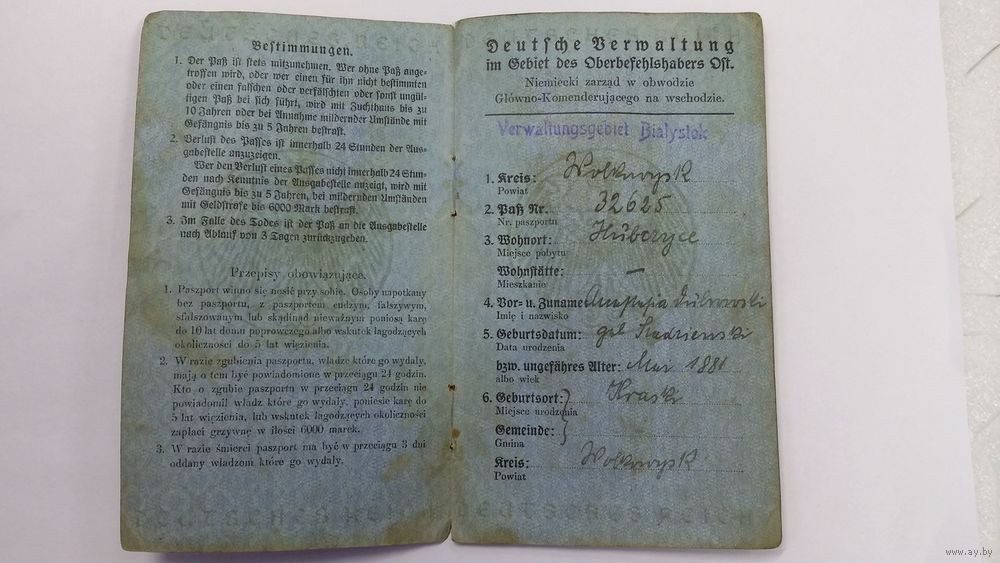 Bestimmungen.
1. Der Paß ist stets mitzunehmen. Wer ohne Paß ange-
troffen wird, oder wer einen für ihn nicht bestimmten
oder einen falschen oder verfälschten oder sonst ungül-
tigen Paß bei sich führt, wird mit Zuchthaus bis zu
10 Jahren oder bei Annahme mildernder Umstände mit
Gefängnis bis zu 5 Jahren bestraft.
2. Verlust des Passes ist innerhalb 24 Stunden der Aus-
gabestelle anzuzeigen.
Wer den Verlust eines Passes nicht innerhalb 24 Stun-
den nach Kenntnis der Ausgabestelle anzeigt, wird mit
Gefängnis bis zu 5 Jahren, bei mildernden Umständen
mit Geldstrafe bis 6000 Mark bestraft.
3. Im Falle des Todes ist der Paß an die Ausgabestelle
nach Ablauf von 3 Tagen zurückzugeben.
Przepisy obowiązujące.
1. Paszport winno się nosić przy sobie. Osoby napotkany
bez paszportu, z paszportem cudzym, fałszywym,
sfałszowanym lub skądinąd nieważnym poniosą karę
do 10 lat domu poprawczego albo wskutek łagodzących
okoliczności do 5 lat więzienia.
2. W razie zgubienia paszportu, władze które go wydały,
mają o tem być powiadomione w przeciągu 24 godzin.
Kto o zgubie paszportu w przeciągu 24 godzin nie
powiadomił władz które go wydały, poniesie karę do
5 lat więzienia, lub wskutek łagodzących okoliczności
zapłaci grzywnę w ilości 6000 marek.
3. W razie śmierci paszport ma być w przeciągu 3 dni
oddany władzom które go wydały.
Deutsche Verwaltung
im Gebiet des Oberbefehlshabers Ost.
Niemiecki zarząd w obwodzie
Główno-Komenderującego na wschodzie.
Verwaltungsgebiet Bialystok
1. Kreis: Wolkowysk
Powiat
2. Paß Nr. 32625
Nr. paszportu
3. Wohnort:
Miejsce pobytu
Wohnstätte: —
Mieszkanie
4. Vor- u. Zuname: Anastasia
Imię i nazwisko
5. Geburtsdatum: geb.
Data urodzenia
bzw. ungefähres Alter: 1881
albo wiek
6. Geburtsort:
Miejsce urodzenia
Gemeinde:
Gmina
Kreis: Wolkowysk
Powiat
www.ay.by